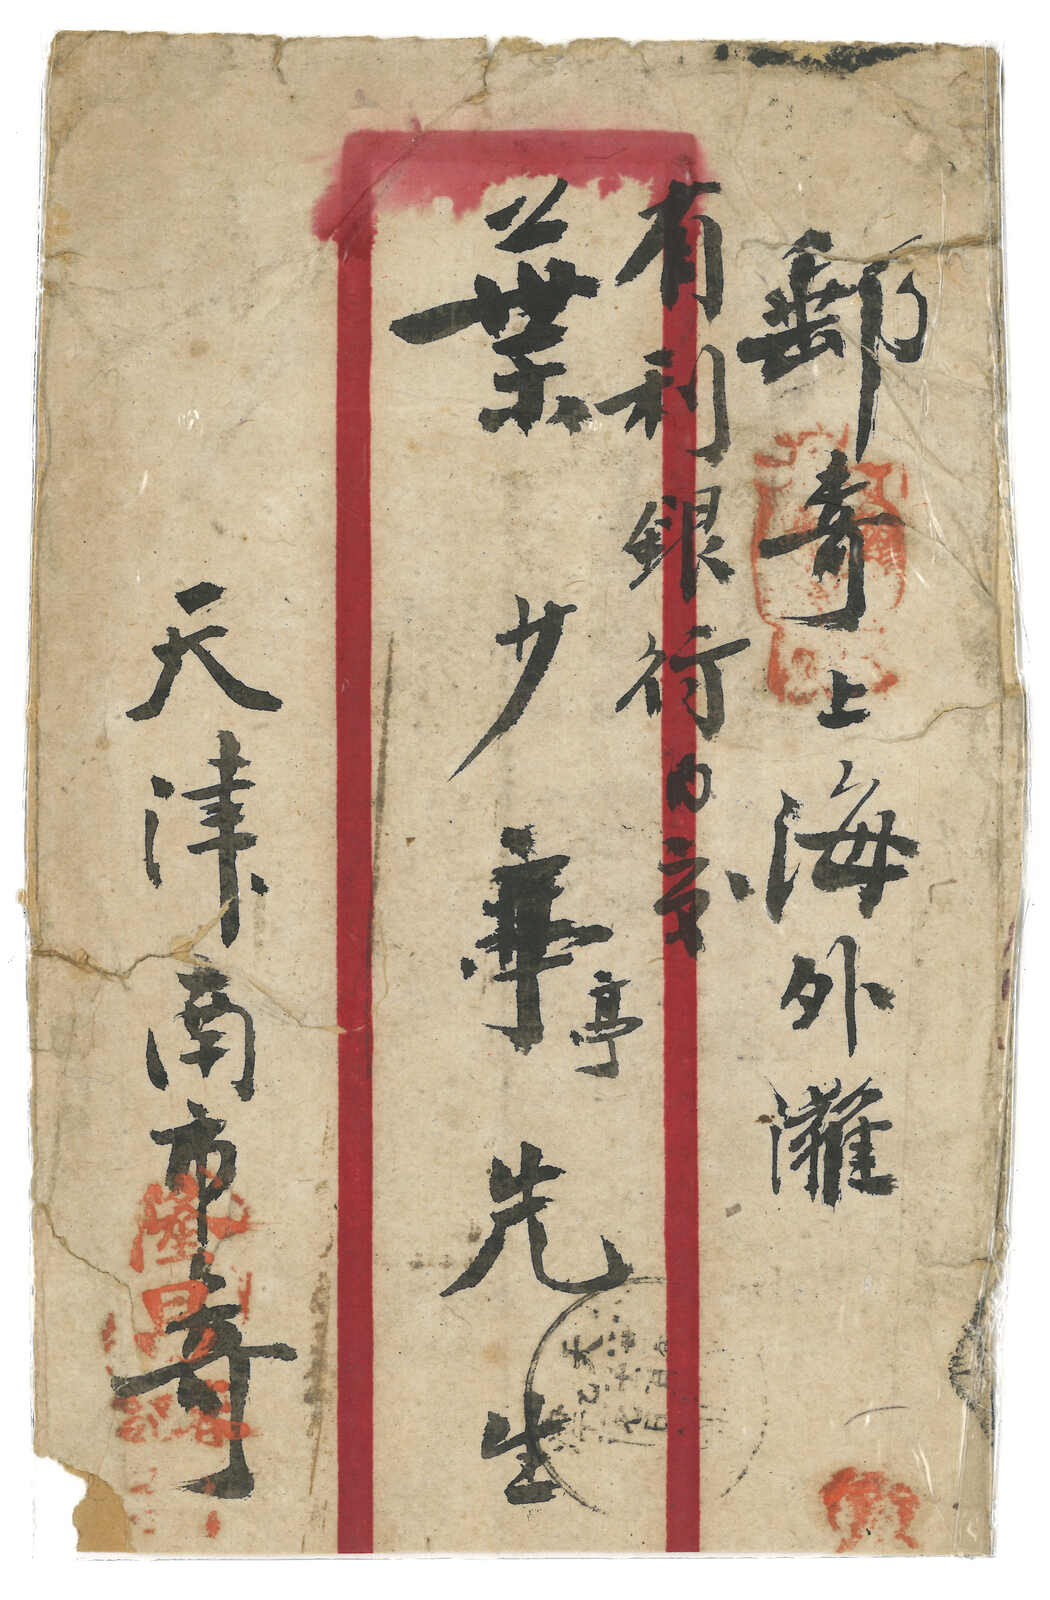 郵寄上海外灘
有利銀行內交
葉少華亭先生
天津南市寄
隆昌